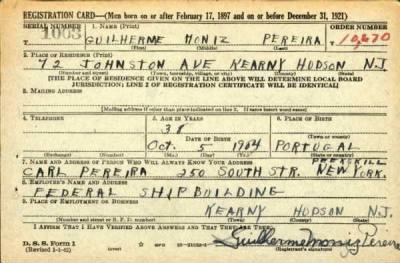 REGISTRATION CARD—(Men born on or after February 17, 1897 and on or before December 31, 1921)
SERIAL NUMBER 1. NAME (Print) ORDER NUMBER
1063 GUILHERME MONIZ PEREIRA 10,670
(First) (Middle) (Last)
2. PLACE OF RESIDENCE (Print)
72 JOHNSTON AVE KEARNY HUDSON N.J.
(Number and street) (Town, township, village, or city) (County) (State)
[THE PLACE OF RESIDENCE GIVEN ON THE LINE ABOVE WILL DETERMINE LOCAL BOARD
JURISDICTION; LINE 2 OF REGISTRATION CERTIFICATE WILL BE IDENTICAL]
3. MAILING ADDRESS
[Mailing address if other than place indicated on line 2. If same insert word same]
4. TELEPHONE 5. AGE IN YEARS 6. PLACE OF BIRTH
38
DATE OF BIRTH (Town or county)
Oct. 5 1904 PORTUGAL
(Exchange) (Number) (Mo.) (Day) (Yr.) (State or country)
7. NAME AND ADDRESS OF PERSON WHO WILL ALWAYS KNOW YOUR ADDRESS PEEKSKILL
CARL PEREIRA 250 SOUTH STR. NEW YORK.
8. EMPLOYER'S NAME AND ADDRESS
FEDERAL SHIPBUILDING
9. PLACE OF EMPLOYMENT OR BUSINESS
KEARNY HUDSON N.J.
(Number and street or R. F. D. number) (Town) (County) (State)
I AFFIRM THAT I HAVE VERIFIED ABOVE ANSWERS AND THAT THEY ARE TRUE.
D. S. S. Form 1
(Revised 1-1-42) Guilherme Moniz Pereira
(Registrant's signature)